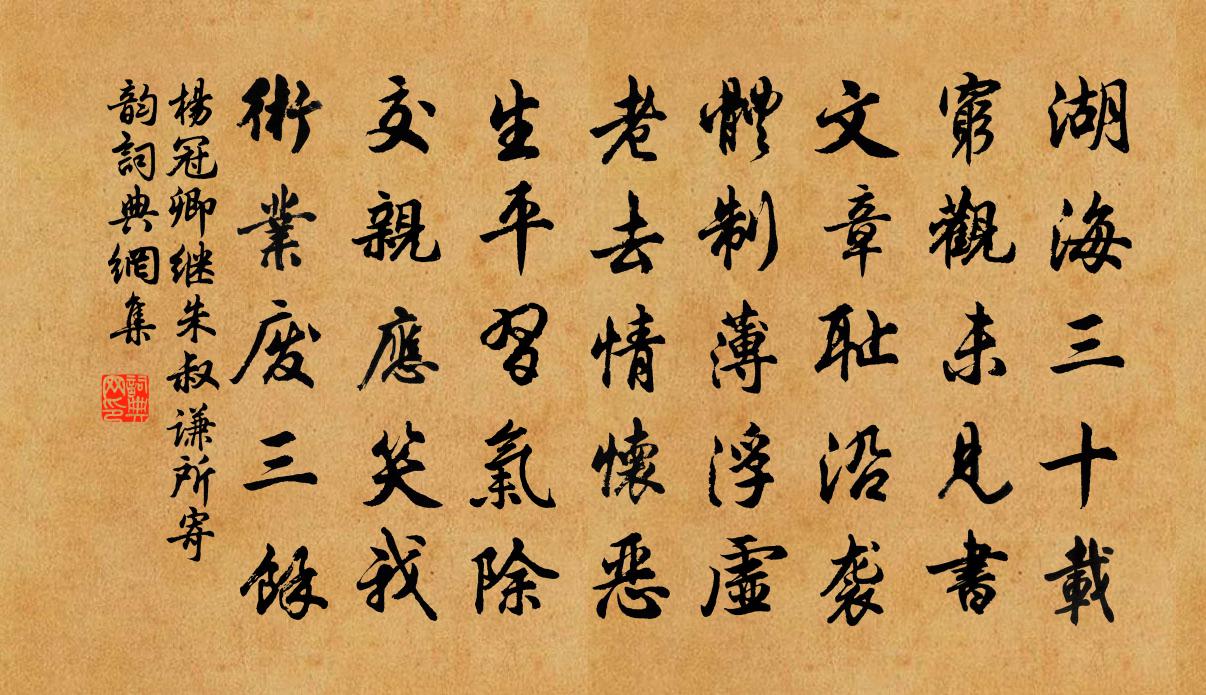 湖海三十載
窮觀未見書
文章耻沿袭
體制薄浮虛
老去情懷惡
生平習氣除
交親應笑我
術業废三餘
楊冠卿继朱叔谦所寄
韵詞典網集
詞典网印